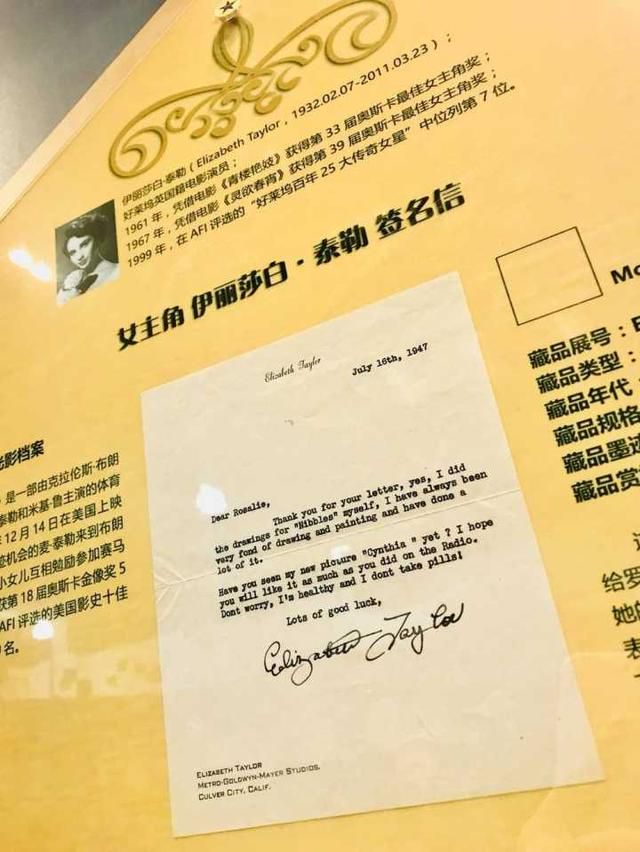 伊丽莎白·泰勒（Elizabeth Taylor，1932.02.07-2011.03.23）；
好莱坞英国籍电影演员；
1961 年，凭借电影《青楼艳妓》获得第 33 届奥斯卡最佳女主角奖；
1967 年，凭借电影《灵欲春宵》获得第 39 届奥斯卡最佳女主角奖；
1999 年，在 AFI 评选的“好莱坞百年 25 大传奇女星”中位列第 7 位。
女主角 伊丽莎白·泰勒 签名信
Elizabeth Taylor
July 16th, 1947
Dear Rosalie,
Thank you for your letter, yes, I did
the drawings for "Nibbles" myself, I have always been
very fond of drawing and painting and have done a
lot of it.
Have you seen my new picture "Cynthia " yet ? I hope
you will like it as much as you did on the Radio.
Dont worry, I'm healthy and I dont take pills!
Lots of good luck,
Elizabeth Taylor
ELIZABETH TAYLOR
METRO-GOLDWYN-MAYER STUDIOS.
CULVER CITY, CALIF.
影档案
）是一部由克拉伦斯·布朗
泰勒和米基·鲁主演的体育
12 月 14 日在美国上映
机会的麦·泰勒来到布朗
小女儿互相勉励参加赛马
获第 18 届奥斯卡金像奖 5
AFI 评选的美国影史十佳
名。
Mo
藏品展号：E
藏品类型：
藏品年代
藏品规格
藏品墨迹
藏品赏
给罗
她
表